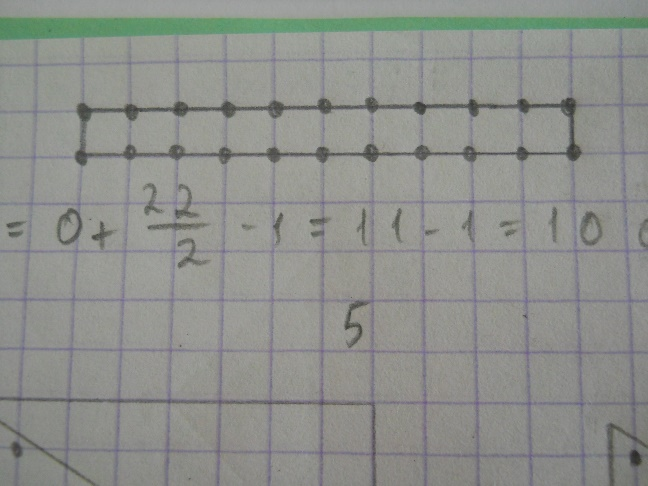 = 0 + 22/2 - 1 = 11 - 1 = 10
5